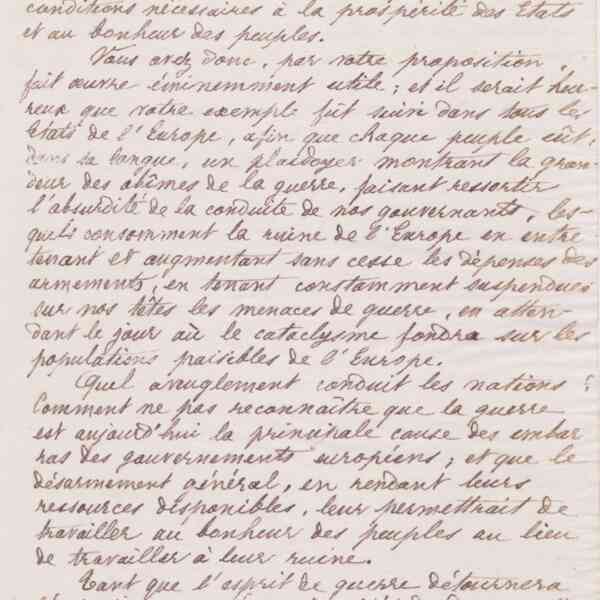 conditions nécessaires à la prospérité des Etats
et au bonheur des peuples.
Vous avez donc, par votre proposition,
fait œuvre éminemment utile ; et il serait heu-
reux que votre exemple fût suivi dans tous les
Etats de l'Europe, afin que chaque peuple eût,
dans sa langue, un plaidoyer montrant la gran-
deur des abîmes de la guerre, faisant ressortir
l'absurdité de la conduite de nos gouvernants, les-
quels consomment la ruine de l'Europe en entre
tenant et augmentant sans cesse les dépenses des
armements, en tenant constamment suspendues
sur nos têtes les menaces de guerre, en atten-
dant le jour où le cataclysme fondra sur les
populations paisibles de l'Europe.
Quel aveuglement conduit les nations ?
Comment ne pas reconnaître que la guerre
est aujourd'hui la principale cause des embar
ras des gouvernements européens ; et que le
désarmement général, en rendant leurs
ressources disponibles, leur permettrait de
travailler au bonheur des peuples au lieu
de travailler à leur ruine.
Tant que l'esprit de guerre détournera